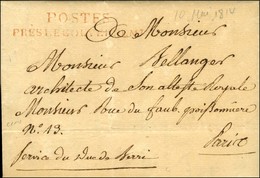 POSTES
PRES LE GOUV
10 Mai 1814
A Monsieur
Monsieur Bellanger
architecte de Son altesse Royale
Monsieur Rue du faub. poissonniere
N.º 13.
Paris
Service du Duc de Berri